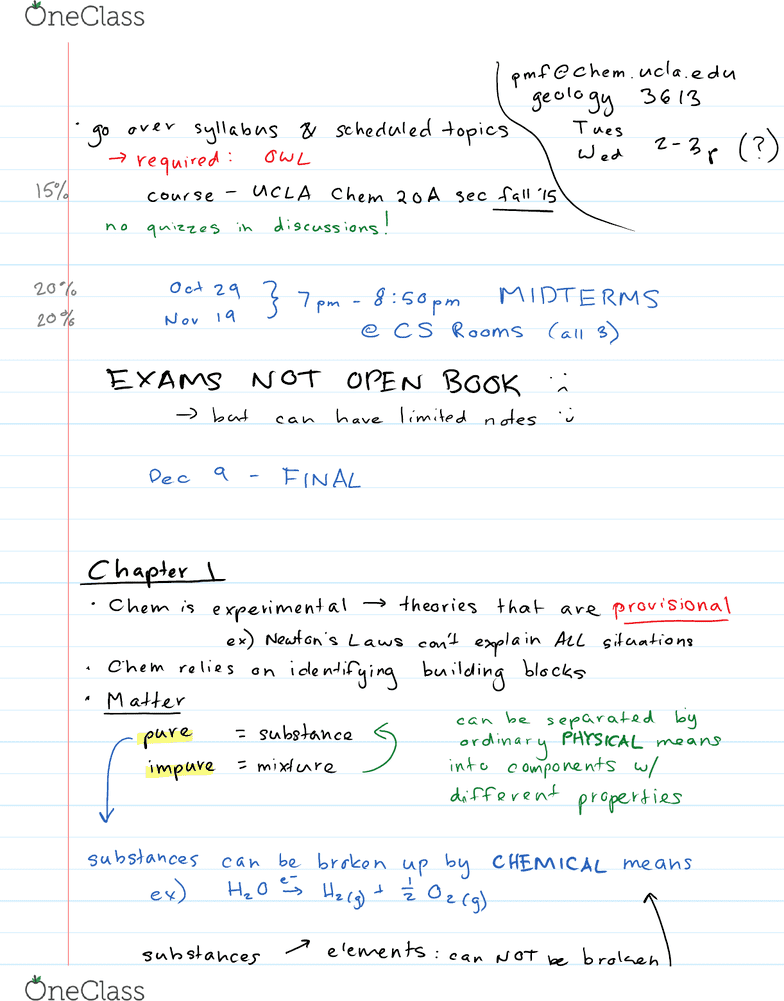 OneClass
pmf@chem.ucla.edu
geology 3613
Tues
Wed 2-3p (?)
· go over syllabus & scheduled topics
→ required: OWL
15% course - UCLA Chem 20A sec fall '15
no quizzes in discussions!
20% Oct 29 } 7pm - 8:50pm MIDTERMS
20% Nov 19 @ CS Rooms (all 3)
EXAMS NOT OPEN BOOK :(
→ but can have limited notes :)
Dec 9 - FINAL
Chapter 1
· Chem is experimental → theories that are provisional
ex) Newton's Laws can't explain ALL situations
· Chem relies on identifying building blocks
· Matter
pure = substance
impure = mixture
can be separated by
ordinary PHYSICAL means
into components w/
different properties
substances can be broken up by CHEMICAL means
ex) H₂O e⁻→ H₂(g) + ½ O₂(g)
substances ↗ elements: can NOT be broken
OneClass